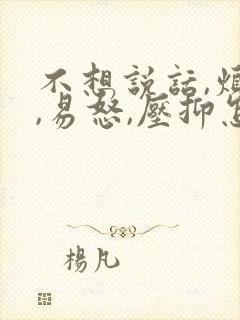 不想説話,煩
,易怒,壓抑怎
楊凡